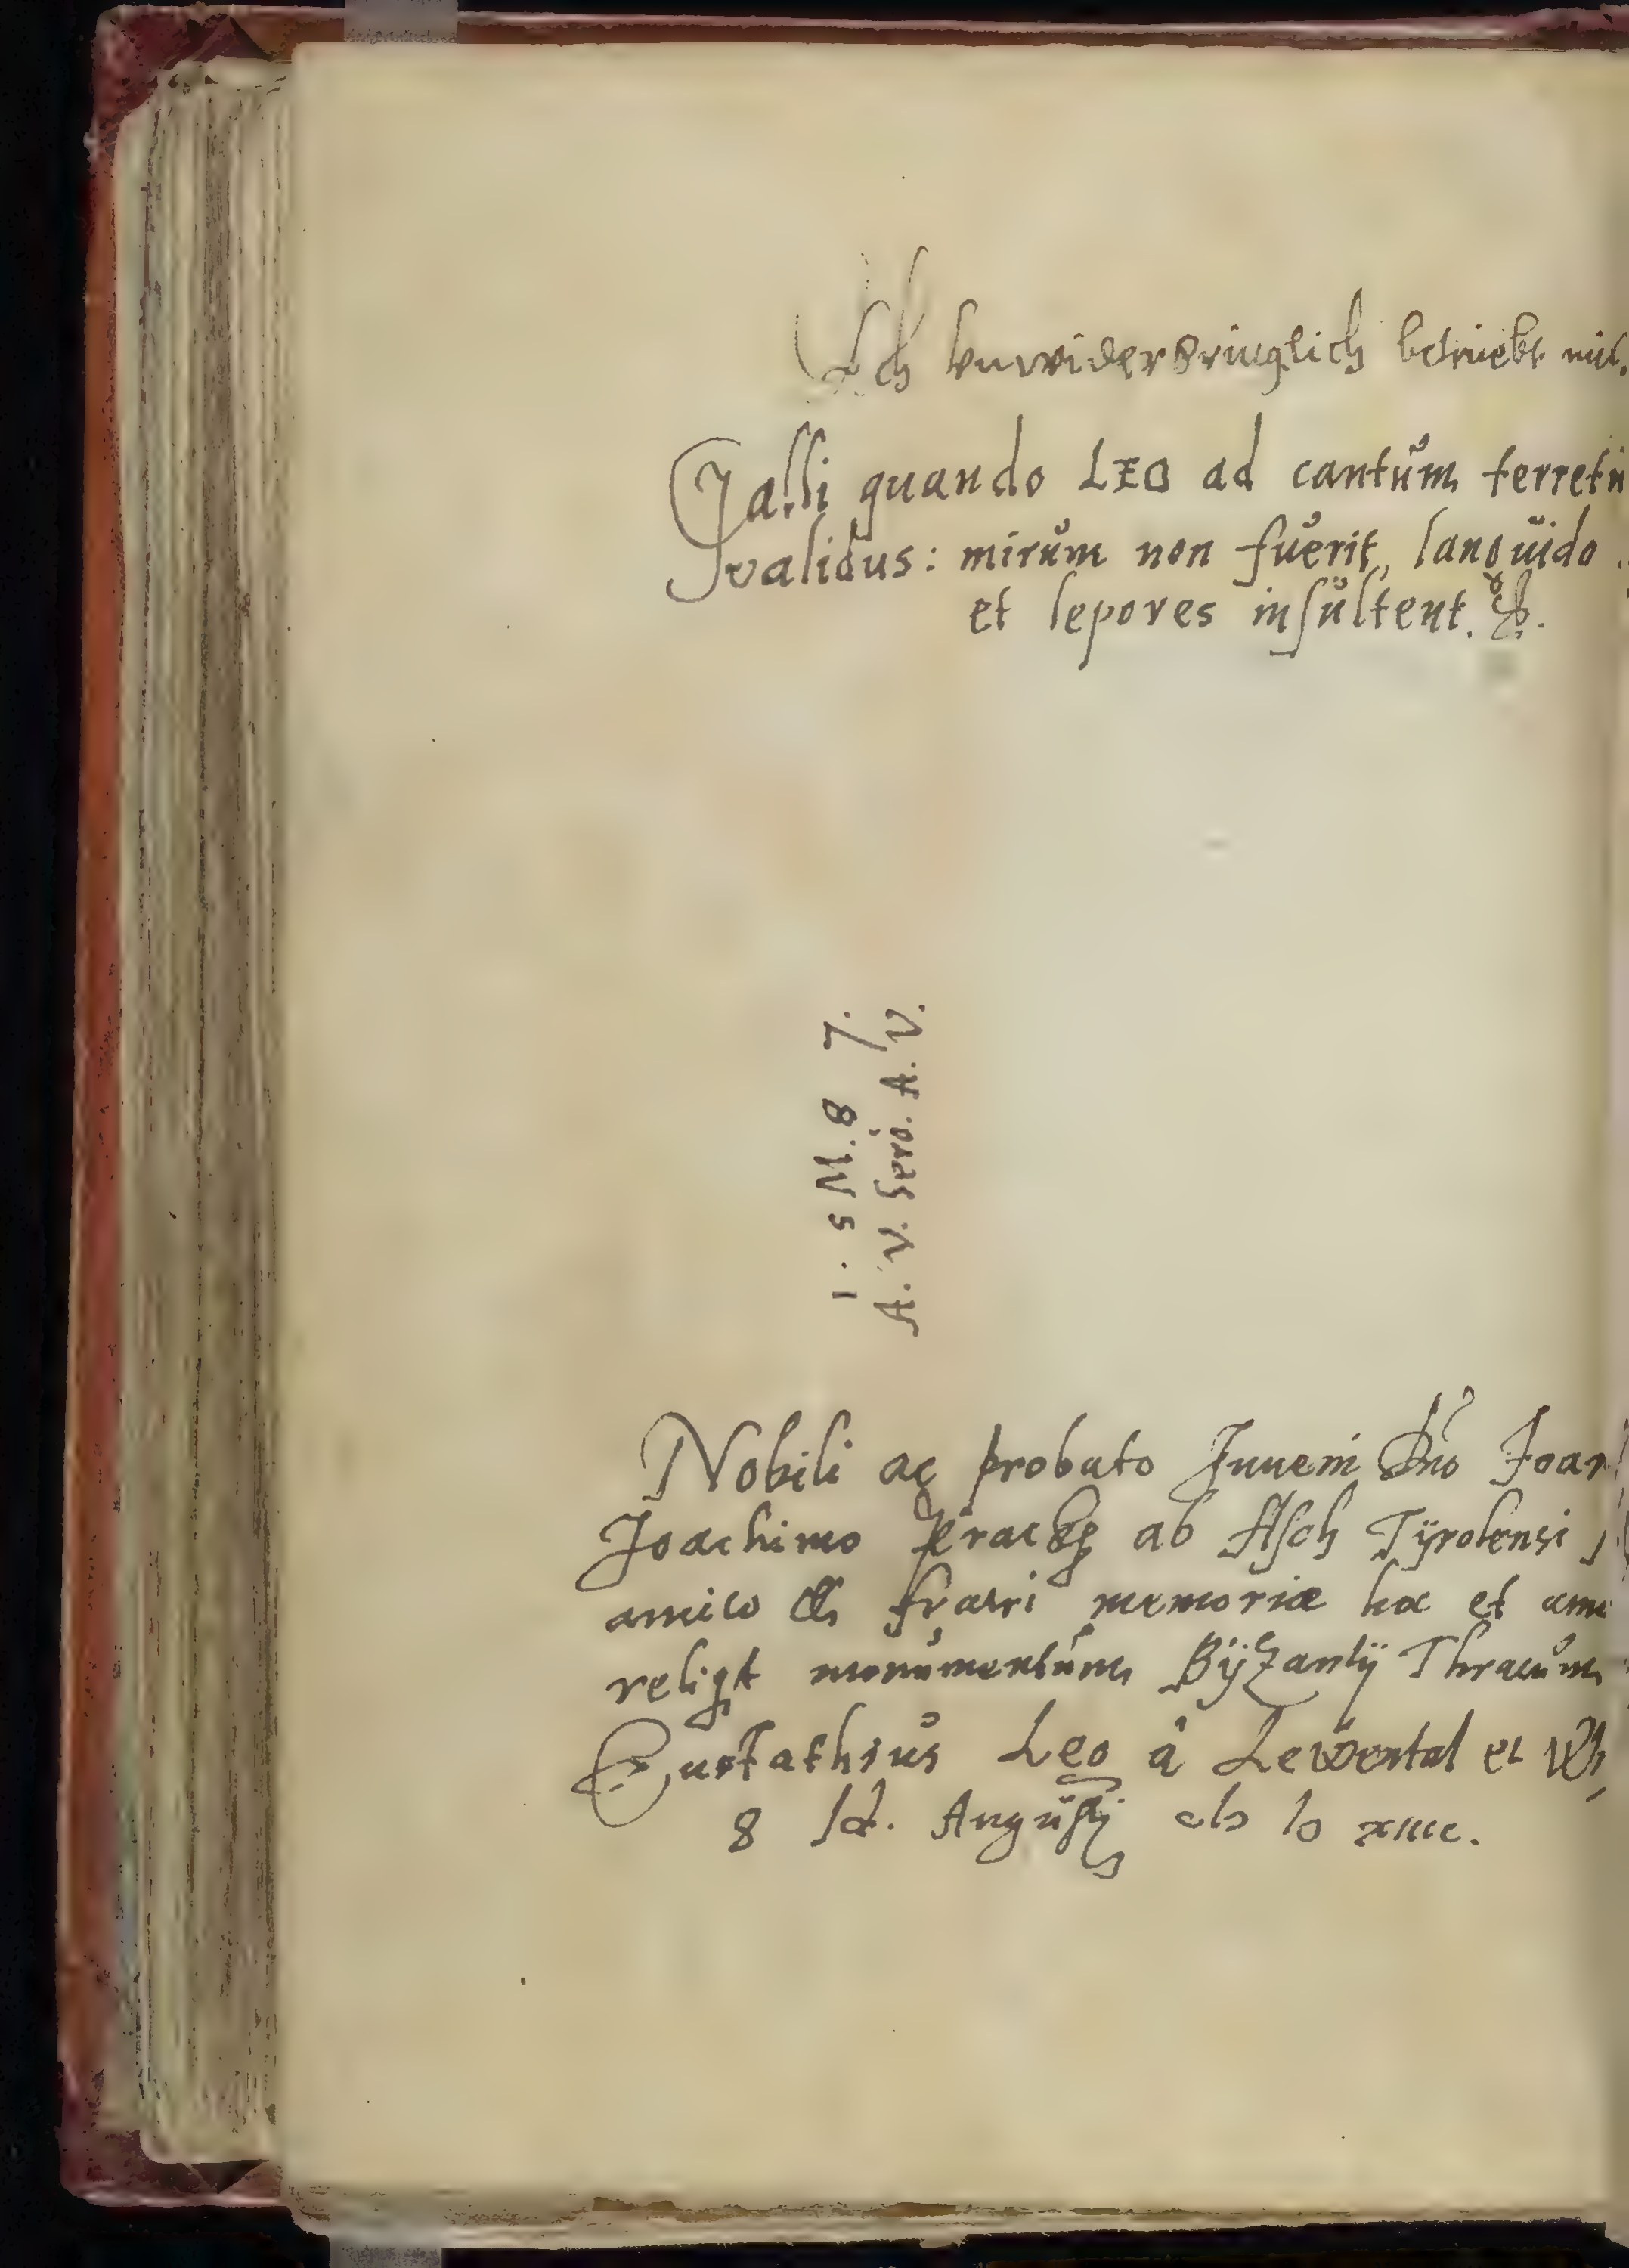 Ich vnwiderbringlich betruebt mic
Galli quando LEO ad cantum terretu
validus: mirum non fuerit, languido
et lepores insultent.
1 . 5 M. 8 7.
A. V. Sero. A. V.
Nobili ac probato Juueni Dno Joan
Joachimo ab Asch Tÿrolensi
amico fratri memoriæ hoc et ami
reliqt monumentum Bÿzantÿ Thracum
Eustathius Leo â Lewental et
8 Id. Augustj cIɔ Iɔ